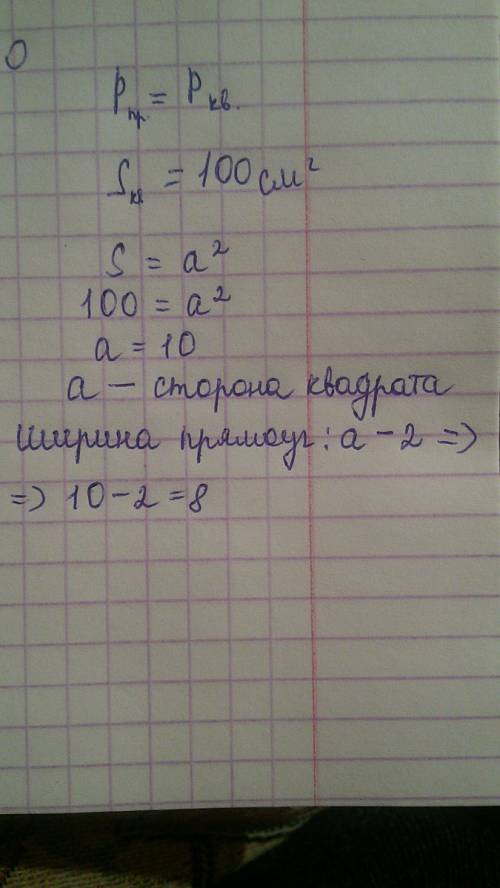 0
Pпр. = Pкв.
Sкв = 100 см²
S = a²
100 = a²
a = 10
a — сторона квадрата
ширина прямоуг: a - 2 =>
=> 10 - 2 = 8